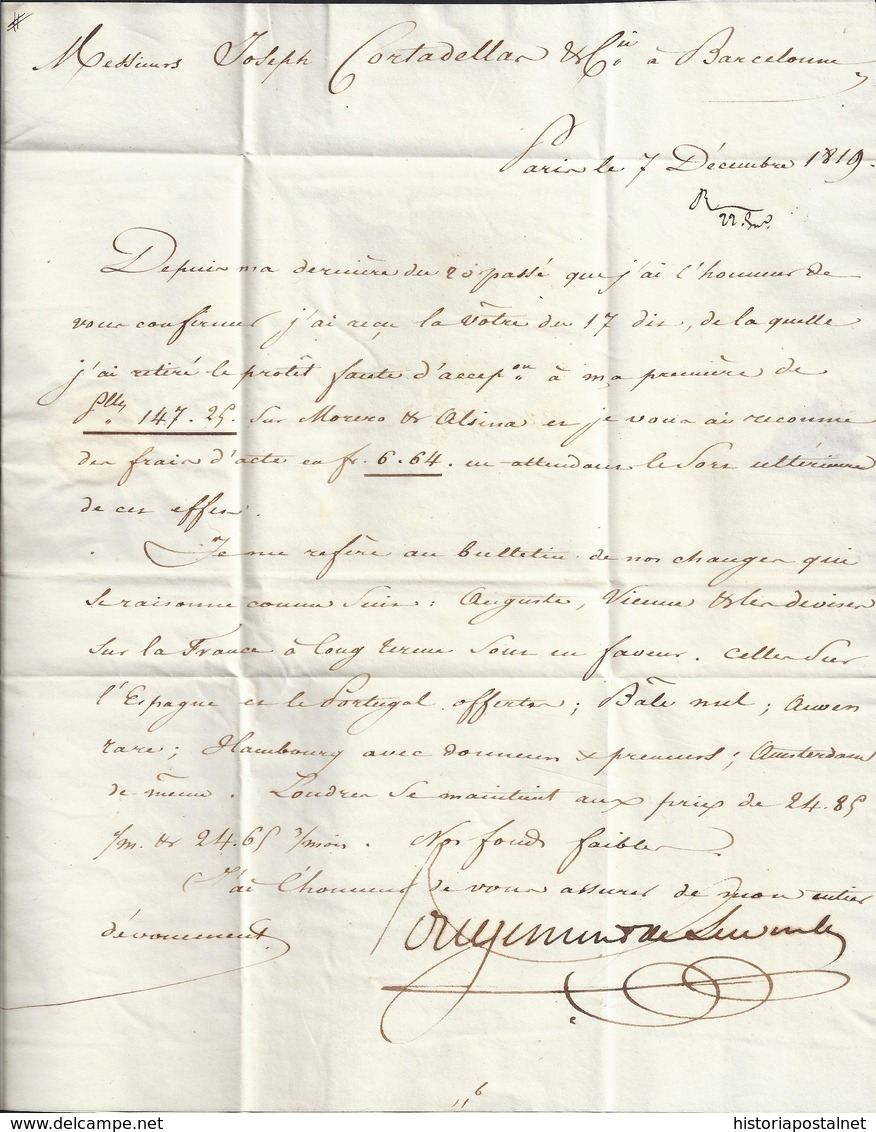 Messieurs Joseph Cortadellas & Cie à Barcelonne
Paris le 7 Décembre 1819.
R
22
Depuis ma dernière du 20 passé que j'ai l'honneur de
vous confirmer, j'ai reçu la vôtre du 17 dit, de la quelle
j'ai retiré le protêt faute d'accepon à ma première de
147.25. sur Morero & Alsina et je vous ai reconnu
des frais d'acte en fr. 6.64. en attendant le sort ultérieure
de cet effet.
Je me refère au bulletin de nos changes qui
se raisonne comme suit : Auguste, Vienne & les devises
sur la France à long terme sont en faveur. celles sur
l'Espagne et le Portugal offertes ; Bâle nul ; Anvers
rare ; Hambourg avec donneurs & preneurs ; Amsterdam
de même. Londres se maintient aux prix de 24.85
1/m. & 24.65 3/mois. Nos fonds faibles
J'ai l'honneur de vous assurer de mon entier
dévouement
Rougemont de Lowenberg
116
www.delcampe.net
historiapostalnet